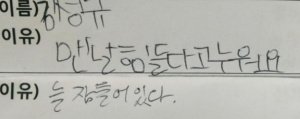 이름)
이유) 맨날 힘들다고 누워요
이유) 늘 잠들어 있다.